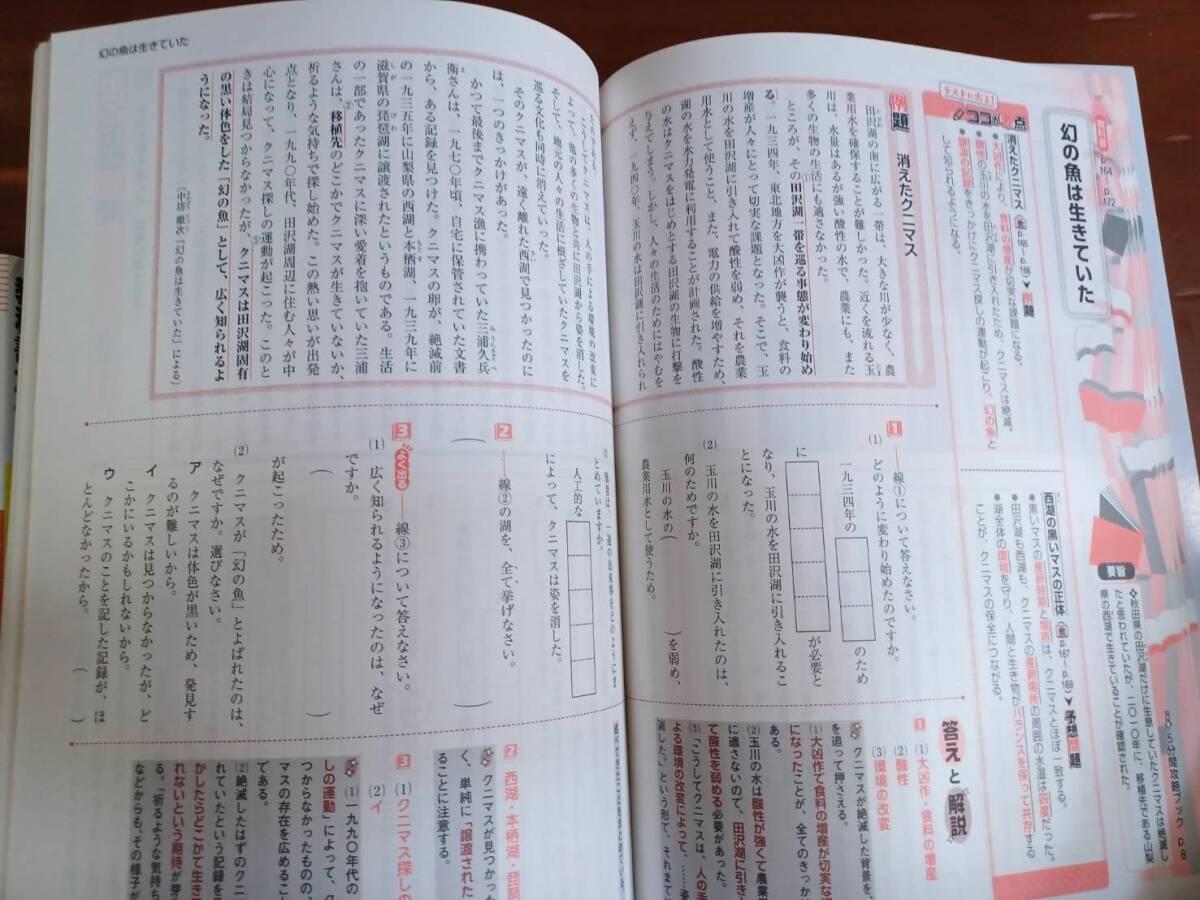 幻の魚は生きていた
教科書 p.164〜p.172
テストに出る！
ココが要点
消えたクニマス（教 p.165〜p.166）▼例題
●大凶作により、食料の増産が切実な課題になる。
●酸性の玉川の水を田沢湖に引き入れたため、クニマスは絶滅。
●譲渡の記録をきっかけにクニマス探しの運動が起こり、幻の魚と
して知られるようになる。
西湖の黒いマスの正体（教 p.167〜p.169）▼予想問題
●黒いマスの産卵時期と場所は、クニマスとほぼ一致する。
●田沢湖も西湖も、クニマスの産卵場所の周囲の水温は四度だった。
●湖全体の環境を守り、人間と生き物がバランスを保って共存する
ことが、クニマスの保全につながる。
5分間攻略ブック p.8
要旨
❖秋田県の田沢湖だけに生息していたクニマスは絶滅し
たと思われていたが、二〇一〇年に、移植先である山梨
県の西湖で生きていることが確認された。
例題 消えたクニマス
田沢湖の南に広がる一帯は、大きな川が少なく、農
業用水を確保することが難しかった。近くを流れる玉
川は、水量はあるが強い酸性の水で、農業にも、また
多くの生物の生活にも適さなかった。
ところが、その田沢湖一帯を巡る事態が変わり始め
る。一九三四年、東北地方を大凶作が襲うと、食料の
増産が人々にとって切実な課題となった。そこで、玉
川の水を田沢湖に引き入れて酸性を弱め、それを農業
用水として使うこと、また、電力の供給を増やすため、
湖の水を水力発電に利用することが計画された。酸性
の水はクニマスをはじめとする田沢湖の生物に打撃を
与えてしまう。しかし、人々の生活のためにはやむを
えず、一九四〇年、玉川の水は田沢湖に引き入れられ
1 ――線①について答えなさい。
(1) どのように変わり始めたのですか。
一九三四年の
のため
に
が必要と
なり、玉川の水を田沢湖に引き入れるこ
とになった。
(2) 玉川の水を田沢湖に引き入れたのは、
何のためですか。
玉川の水の（ ）を弱め、
農業用水として使うため。
答えと解説
1 (1) 大凶作・食料の増産
(2) 酸性
(3) 環境の改変
クニマスが絶滅した背景を、
を追って押さえる。
(1) 大凶作で食料の増産が切実な
になったことが、全てのきっか
ある。
(2) 玉川の水は酸性が強くて農業
に適さないので、田沢湖に引き
て酸性を弱める必要があった。
(3) 「こうしてクニマスは、人の手
よる環境の改変によって、……姿
消した。」という形で、それまで
幻の魚は生きていた
こうしてクニマスは、人の手による環境の改変に
よって、他の多くの生物と共に田沢湖から姿を消した。
そして、地元の人々の生活に根ざしていたクニマスを
巡る文化も同時に消えていった。
そのクニマスが、遠く離れた西湖で見つかったのに
は、一つのきっかけがあった。
かつて最後までクニマス漁に携わっていた三浦久兵
衛さんは、一九七〇年頃、自宅に保管されていた文書
から、ある記録を見つけた。クニマスの卵が、絶滅前
の一九三五年に山梨県の西湖と本栖湖、一九三九年に
滋賀県の琵琶湖に譲渡されたというものである。生活
の一部であったクニマスに深い愛着を抱いていた三浦
さんは、②移植先のどこかでクニマスが生きていないか、
祈るような気持ちで探し始めた。この熱い思いが出発
点となり、一九九〇年代、田沢湖周辺に住む人々が中
心になって、クニマス探しの運動が起こった。このと
きは結局見つからなかったが、③クニマスは田沢湖固有
の黒い体色をした「幻の魚」として、広く知られるよ
うになった。
（中坊 徹次「幻の魚は生きていた」による）
(3) 筆者は、一連の出来事をどのようにま
とめていますか。
人工的な
によって、クニマスは姿を消した。
2 ――線②の湖を、全て挙げなさい。
（ ）
3 よく出る ――線③について答えなさい。
(1) 広く知られるようになったのは、なぜ
ですか。
（ ）
が起こったため。
(2) クニマスが「幻の魚」とよばれたのは、
なぜですか。選びなさい。
ア クニマスは体色が黒いため、発見す
るのが難しいから。
イ クニマスは見つからなかったが、ど
こかにいるかもしれないから。
ウ クニマスのことを記した記録が、ほ
とんどなかったから。
（ ）
2 西湖・本栖湖・琵琶
クニマスが見つかっ
く、単純に「譲渡された
ることに注意する。
3 (1) クニマス探しの
(2) イ
(1) 一九九〇年代の
しの運動」によって、
つからなかったものの、
マスの存在を広めるこ
である。
(2) 絶滅したはずのクニ
れていたという記録を
かしたらどこかで生き
れないという期待が芽
る。「祈るような気持ち
などからも、その様子が